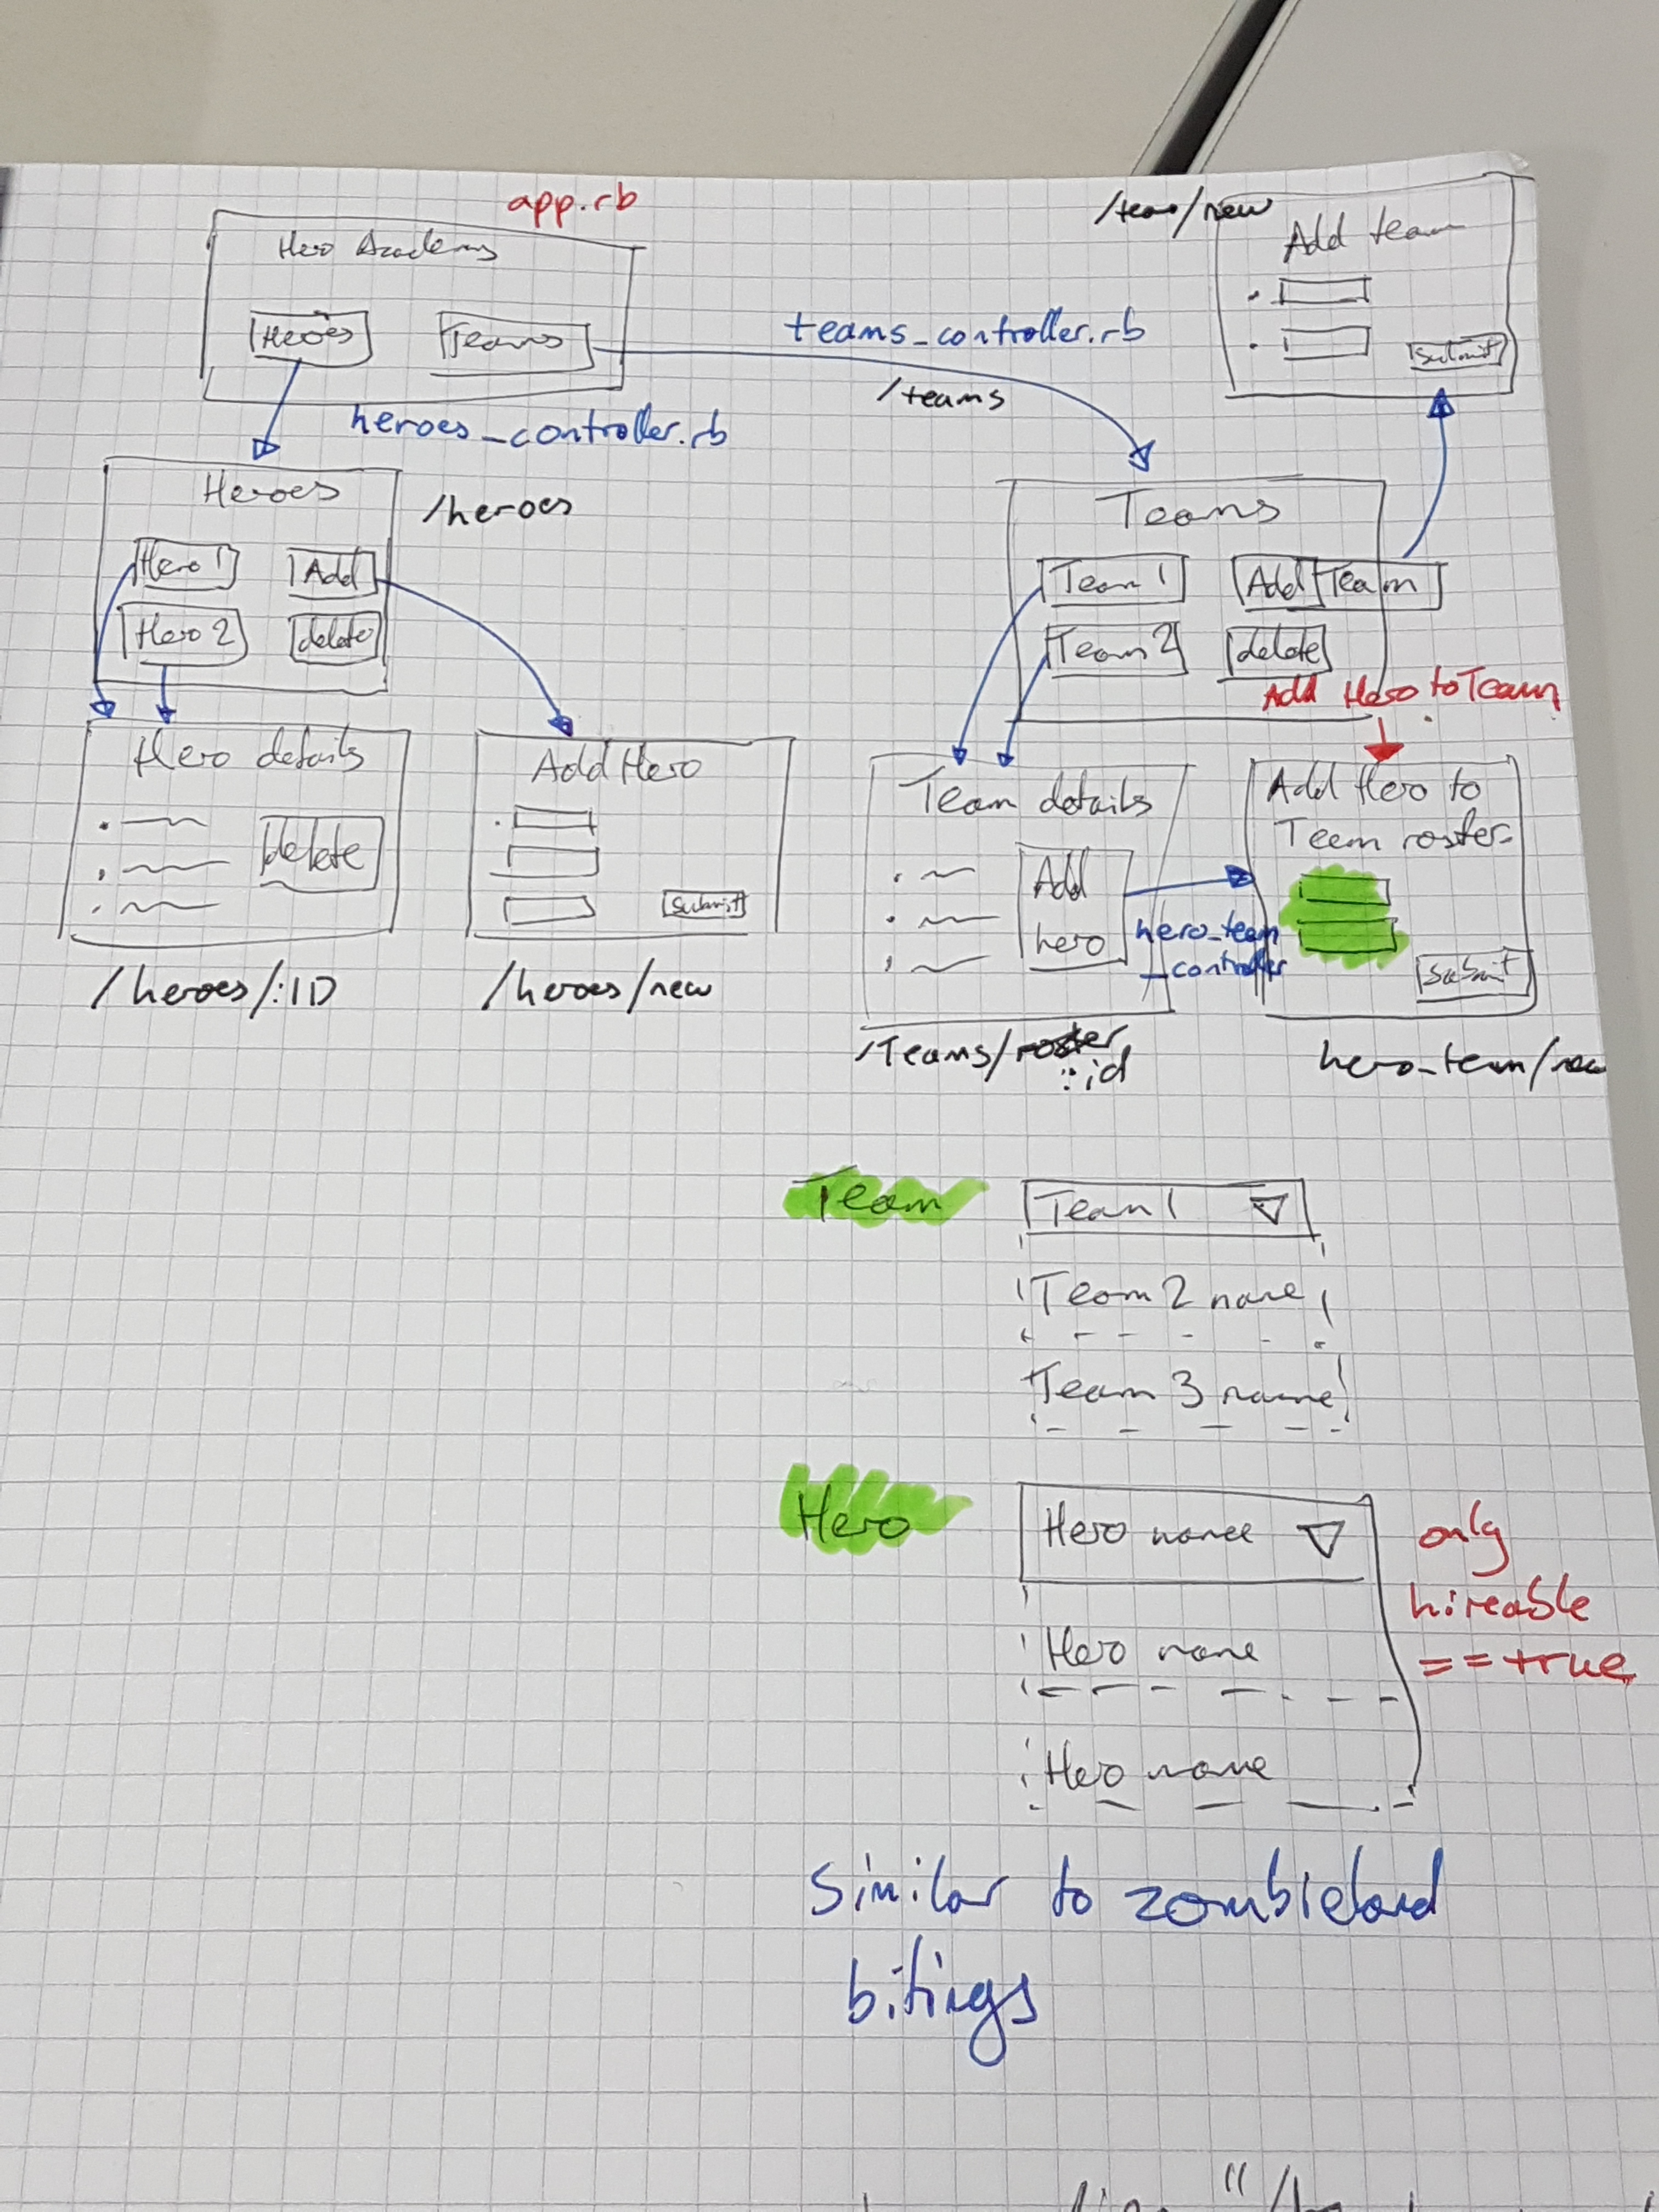 app.rb
Hero Academy
Heroes
Teams
heroes_controller.rb
teams_controller.rb
/teams
/team/new
Add team
submit
Heroes
/heroes
Hero 1
Add
Hero 2
delete
Teams
Team 1
Add Team
Team 2
delete
Add Hero to Team
Hero details
delete
/heroes/:ID
Add Hero
submit
/heroes/new
Team details
Add
hero
hero_team
_controller
/Teams/roster
:id
Add Hero to
Team roster
submit
hero_team/new
Team
Team 1
Team 2 name
Team 3 name
Hero
Hero name
Hero name
Hero name
only
hireable
== true
Similar to zombieland
bitings